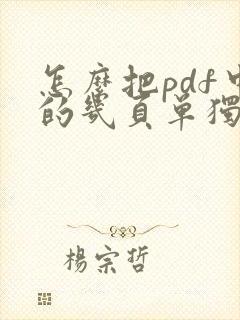 怎麼把pdf中
的幾頁單獨
楊宗哲